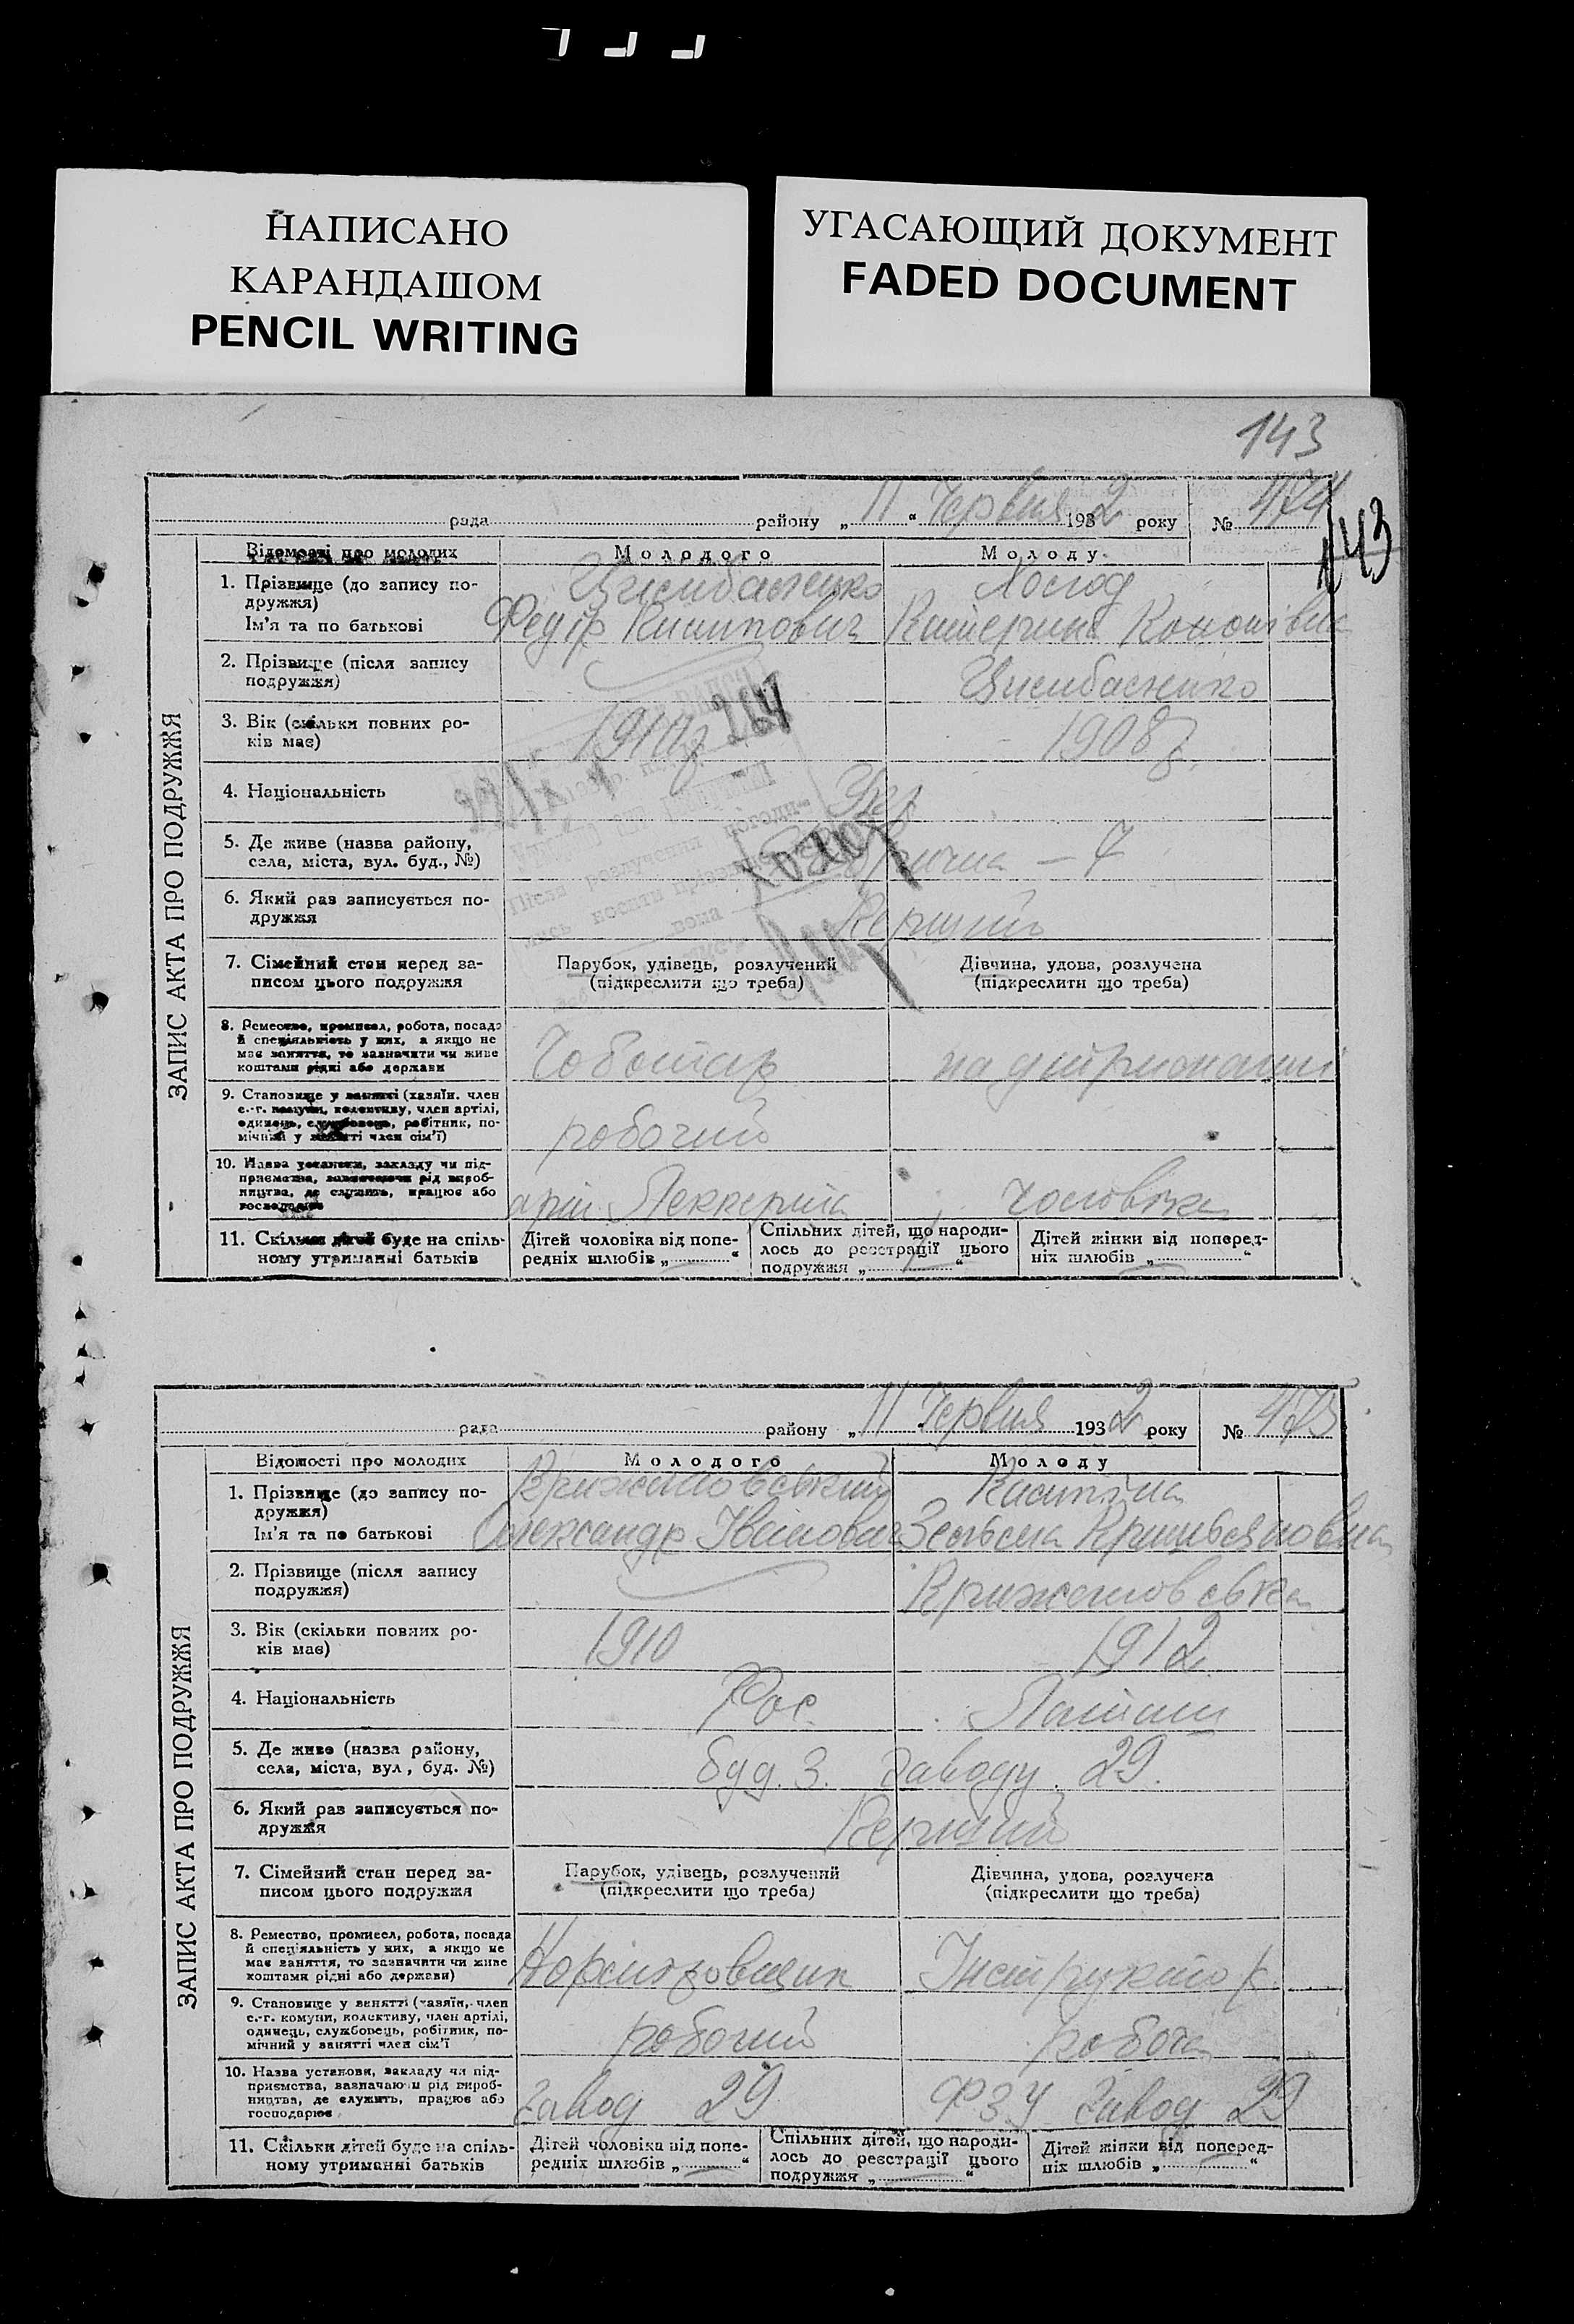 НАПИСАНО
КАРАНДАШОМ
PENCIL WRITING
УГАСАЮЩИЙ ДОКУМЕНТ
FADED DOCUMENT
143
143
рада району „ 11 “ Червня 1932 року № 474
ЗАПИС АКТА ПРО ПОДРУЖЖЯ
Відомості про молодих Молодого Молоду
1. Прізвище (до запису по-
дружжя)
Ім'я та по батькові
Федір Катерина
2. Прізвище (після запису
подружжя)
3. Вік (скільки повних ро-
ків має)
1910 р 1908 р.
264
4. Національність
Укр
5. Де живе (назва району,
села, міста, вул. буд., №)
— 7
6. Який раз записується по-
дружжя
Перший
7. Сімейний стан перед за-
писом цього подружжя
Парубок, удівець, розлучений
(підкреслити що треба)
Дівчина, удова, розлучена
(підкреслити що треба)
8. Ремество, промисел, робота, посада
й спеціяльність у них, а якщо не
має заняття, то зазначити чи живе
коштами рідні або держави
Чоботар на утриманні
9. Становище у занятті (хазяїн. член
с.-г. комуни, колективу, член артілі,
одинець, службовець, робітник, по-
мічний у занятті член сім'ї)
робочий
10. Назва установи, закладу чи під-
приємства, зазначаючи рід вироб-
ництва, де служить, працює або
господарює
чоловіка
11. Скільки дітей буде на спіль-
ному утриманні батьків
Дітей чоловіка від попе-
редніх шлюбів „ “
Спільних дітей, що народи-
лось до реєстрації цього
подружжя „ “
Дітей жінки від поперед-
ніх шлюбів „ “
рада району „ 11 Червня 1932 року № 475
ЗАПИС АКТА ПРО ПОДРУЖЖЯ
Відомості про молодих Молодого Молоду
1. Прізвище (до запису по-
дружжя)
Ім'я та по батькові
Крижановський
Олександр Іванович
2. Прізвище (після запису
подружжя)
Крижановська
3. Вік (скільки повних ро-
ків має)
1910 1912
4. Національність
Рос.
5. Де живе (назва району,
села, міста, вул., буд. №)
буд. 3. заводу. 29.
6. Який раз записується по-
дружжя
Перший
7. Сімейний стан перед за-
писом цього подружжя
Парубок, удівець, розлучений
(підкреслити що треба)
Дівчина, удова, розлучена
(підкреслити що треба)
8. Ремество, промисел, робота, посада
й спеціяльність у них, а якщо не
має заняття, то зазначити чи живе
коштами рідні або держави)
Інструктор
9. Становище у занятті (хазяїн, член
с.-г. комуни, колективу, член артілі,
одинець, службовець, робітник, по-
мічний у занятті член сім'ї
робочий робоча
10. Назва установи, закладу чи під-
приємства, зазначаючи рід вироб-
ництва, де служить, працює або
господарює
Завод 29 ФЗУ Завод 29
11. Скільки дітей буде на спіль-
ному утриманні батьків
Дітей чоловіка від попе-
редніх шлюбів „ “
Спільних дітей, що народи-
лось до реєстрації цього
подружжя „ “
Дітей жінки від поперед-
ніх шлюбів „ “